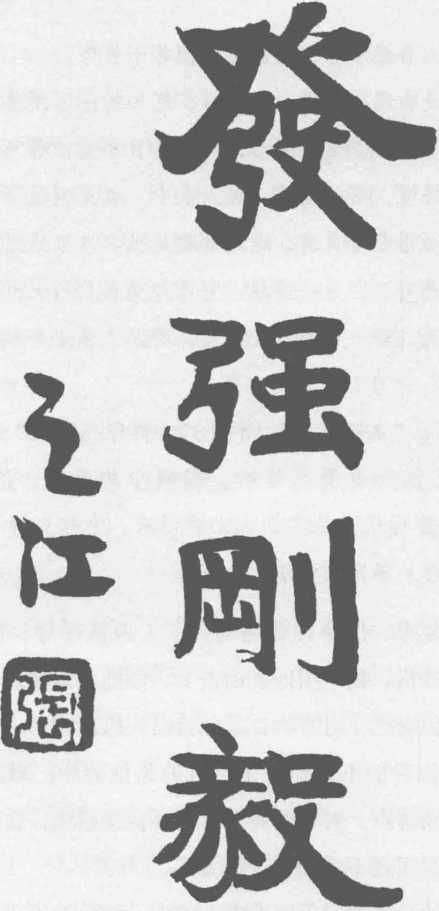 發强剛毅
之江
張